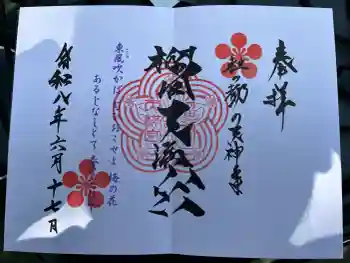 奉拝
杜の都の天神さま
榴岡天満宮
東風吹かばにほひおこせよ 梅の花
あるじなしとて 春
令和八年六月十七日